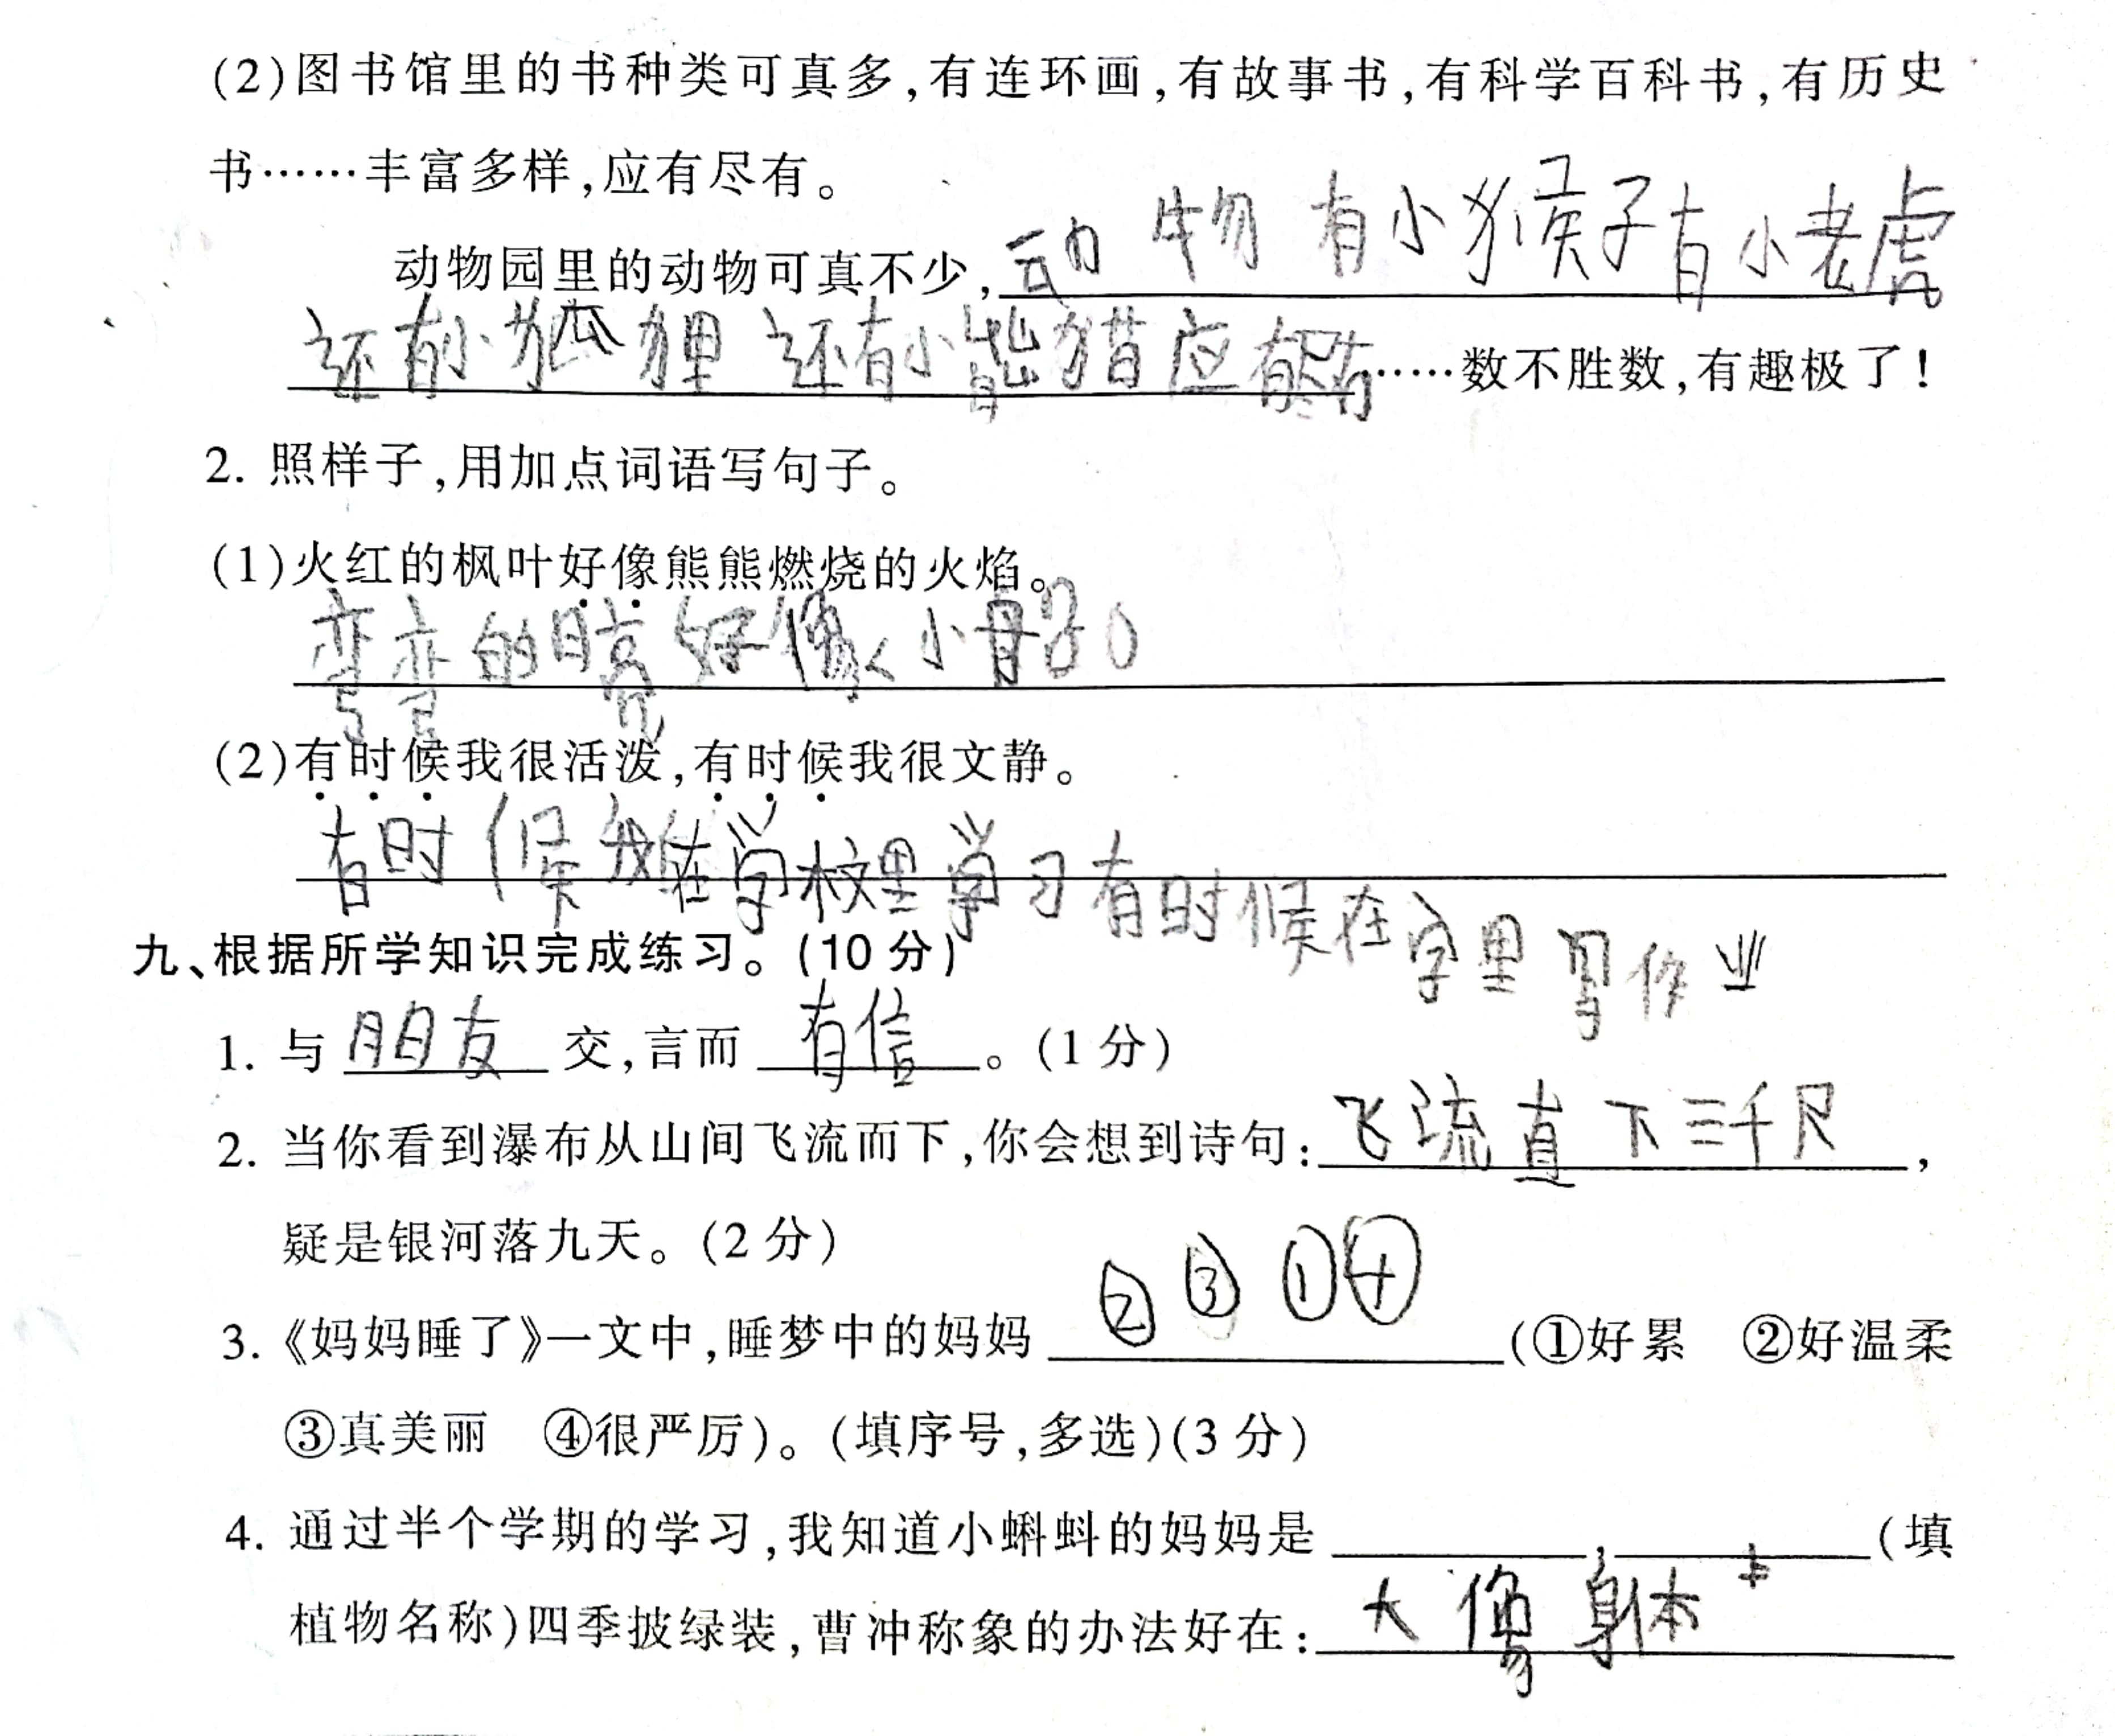 (2)图书馆里的书种类可真多,有连环画,有故事书,有科学百科书,有历史
书……丰富多样,应有尽有。
动物园里的动物可真不少,动物 有小猴子有小老虎
还有小狐狸 还有小熊猫应有尽有……数不胜数,有趣极了!
2. 照样子,用加点词语写句子。
(1)火红的枫叶好像熊熊燃烧的火焰。
弯弯的月亮好像小船。
(2)有时候我很活泼,有时候我很文静。
有时候我在学校里学习有时候在字里写作业
九、根据所学知识完成练习。(10分)
1. 与 朋友 交,言而 有信 。(1分)
2. 当你看到瀑布从山间飞流而下,你会想到诗句:飞流直下三千尺,
疑是银河落九天。(2分)
3.《妈妈睡了》一文中,睡梦中的妈妈 ②③①④ (①好累 ②好温柔
③真美丽 ④很严厉)。(填序号,多选)(3分)
4. 通过半个学期的学习,我知道小蝌蚪的妈妈是 , (填
植物名称)四季披绿装,曹冲称象的办法好在: 大像身体